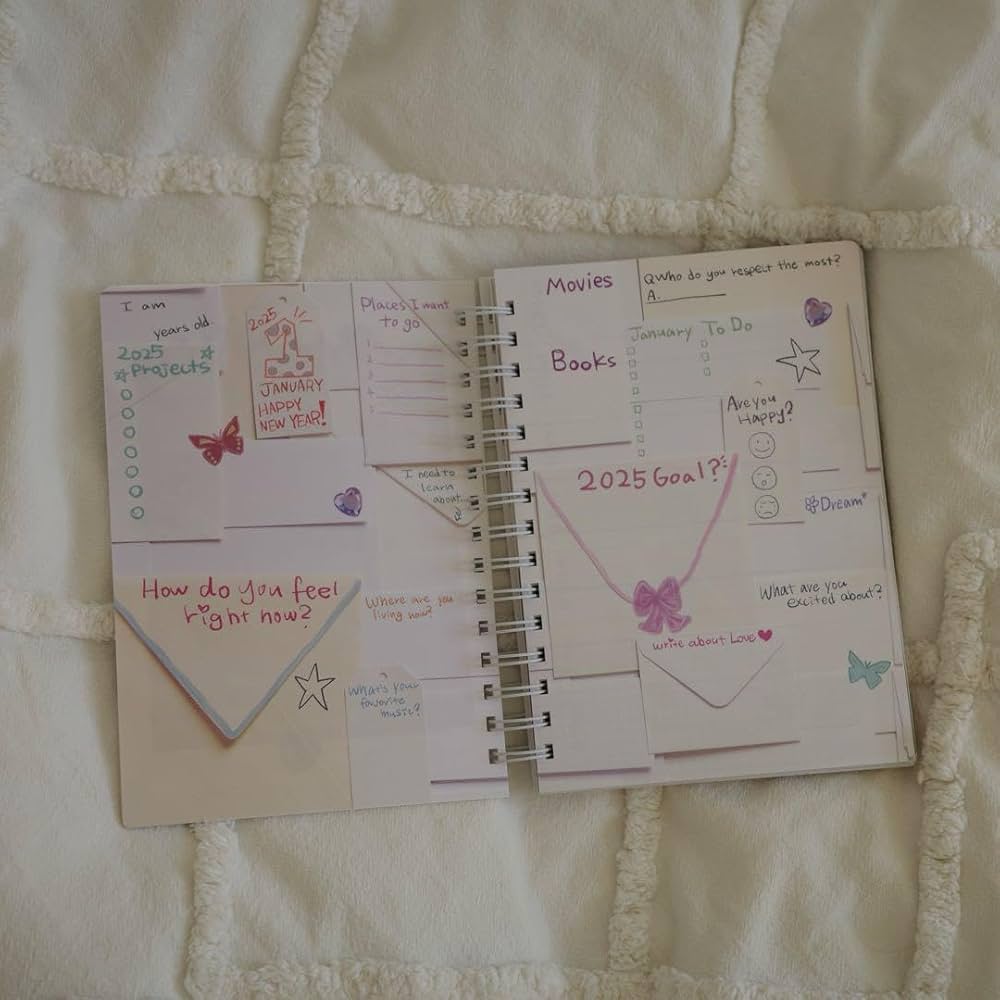 I am
years old.
2025
Projects
2025
1
JANUARY
HAPPY
NEW YEAR!
Places I want
to go
1
2
3
4
5
I need to
learn
about...
How do you feel
right now?
Where are you
living now?
What's your
favorite
music?
Movies
Books
Q.Who do you respect the most?
A.
January To Do
Are you
Happy?
2025 Goal?
Dream*
What are you
excited about?
write about Love